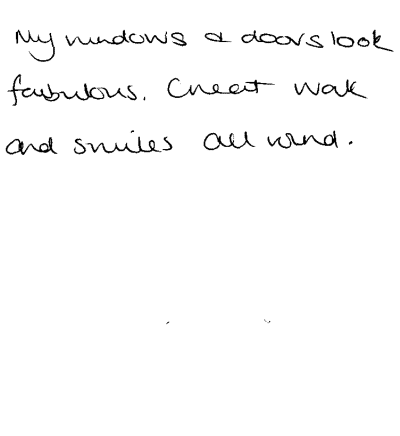 My windows & doors look
fabulous. Great work
and smiles all round.